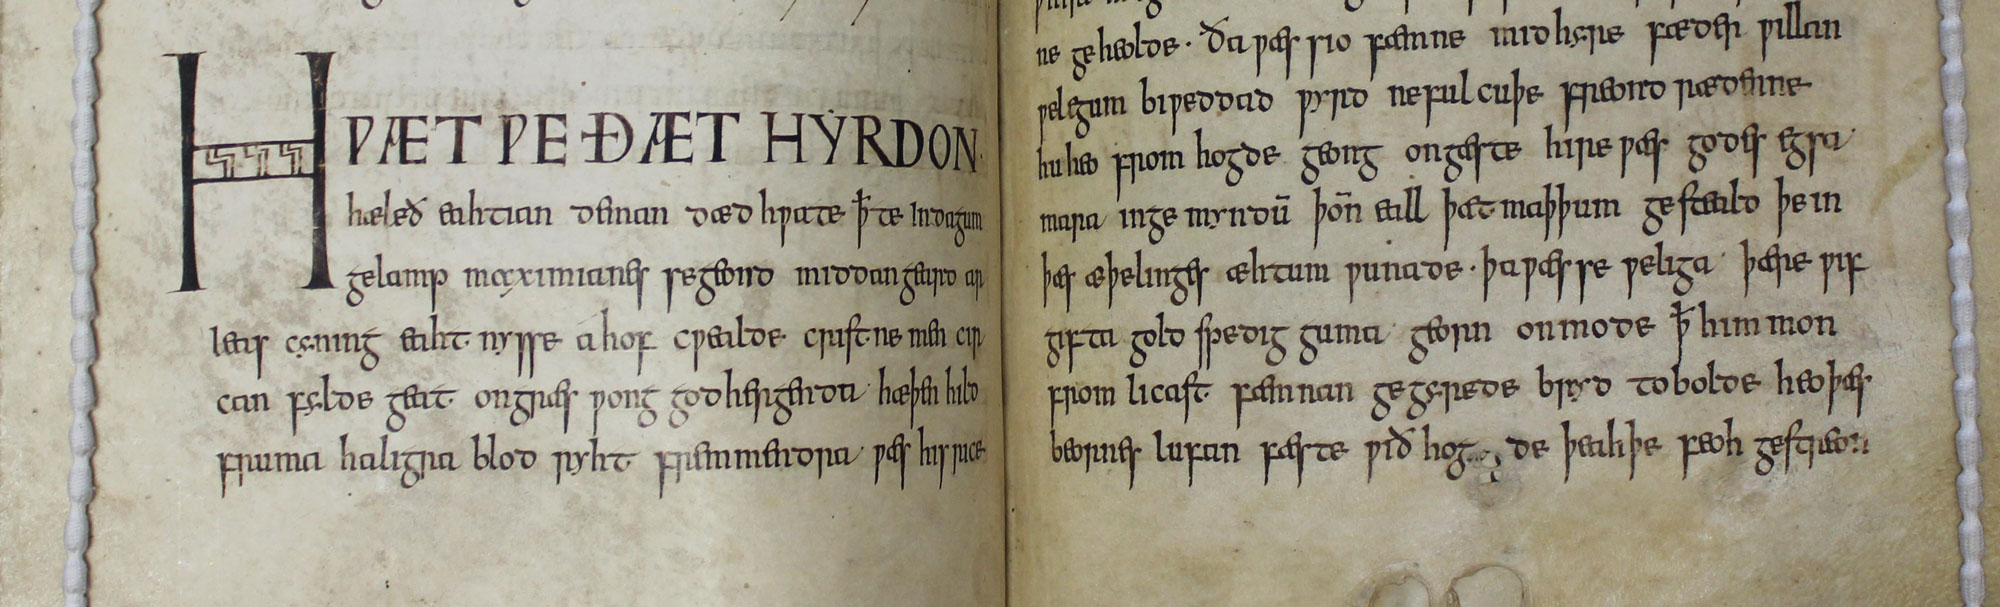 HǷÆT ǷE ÐÆT HẎRDON·
hæleð eahtian deman dædhƿate ꝥte Indagum
gelamp maximianes seȝeond middangeard ar
leas cẏning eaht nysse ahof cƿealde cristne men cir
can fẏlde geat ongræs ƿong godhergendra· hæþen hild
fruma haligra blod ryht fremmendra· ƿæs his rice
ne geheolde· ða ƿæs sio fæmne mid hẏre fæder ƿillan
ƿelegum biƿeddad ƿyrd neful cuþe freond rædenne
hu heo from hogde geong ongæste hire ƿæs godes egsa
mara inge myndū þoñ eall þæt maþþum gesteald þe in
þæs æþelinges æhtum ƿunade· þa ƿæs se ƿeliga þære ƿif
gifta gold spedig guma georn onmode ꝥ him mon
fromlicast fæmnan gegẏrede bryd tobolde heo þæs
beornes lufan fæste ƿið hog de þeahþe feoh gestreon